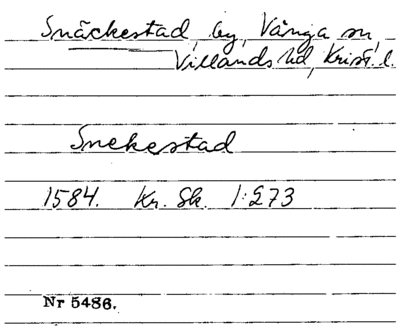 Snäckestad, by, Vånga sn,
Villands hd, Krist. l.
Snekestad
1584. Kr. Sk. 1:273
Nr 5486.